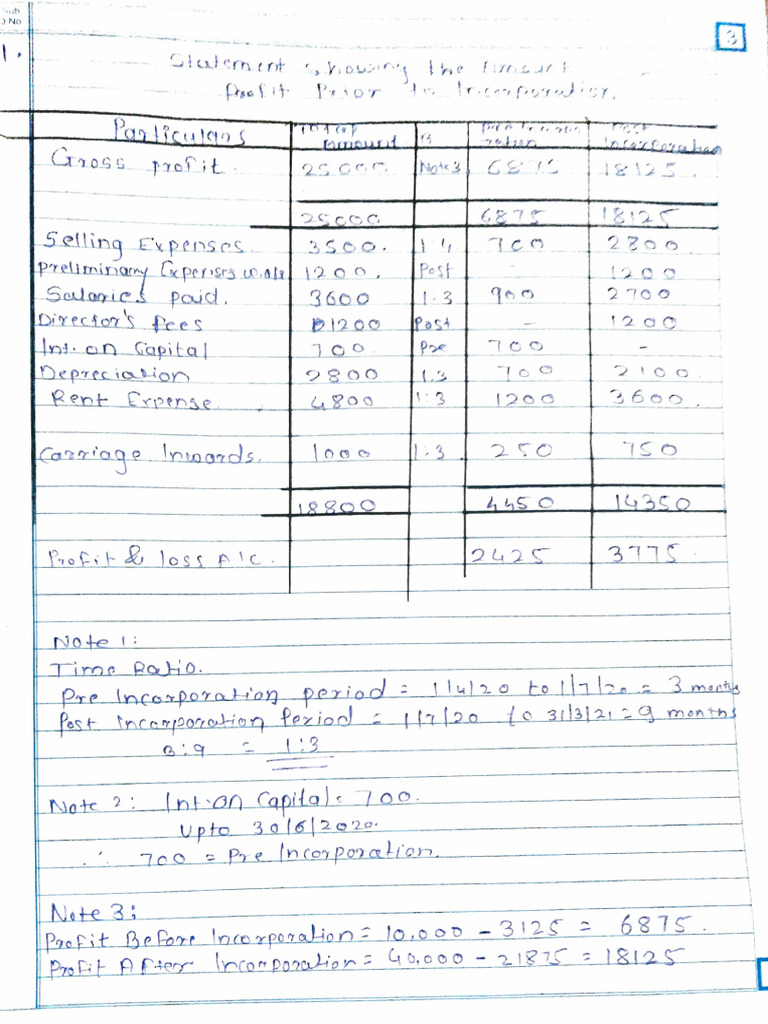 3
1.
Statement showing the Amount
Profit Prior to Incorporation.
Particulars Amount Incorporation
Gross profit. 25000 Note 3 6875 18125.
25000 6875 18125
Selling Expenses. 3500. 1:4 700 2800
Preliminary Expenses w.off 1200. Post - 1200
Salaries paid. 3600 1:3 900 2700
Director's fees 1200 Post - 1200
Int. on Capital 700. Pre 700 -
Depreciation 2800 1:3 700 2100.
Rent Expense. 4800 1:3 1200 3600.
Carriage Inwards. 1000 1:3. 250 750
18800 4450 14350
Profit & loss A/C. 2425 3775.
Note 1:
Time Ratio.
Pre Incorporation period = 1/4/20 to 1/7/20 = 3 months
Post incorporation Period = 1/7/20 to 31/3/21 = 9 months
3:9 = 1:3
Note 2: Int. on Capital = 700.
Upto 30/6/2020.
∴ 700 = Pre Incorporation.
Note 3:
Profit Before Incorporation = 10,000 - 3125 = 6875.
Profit After Incorporation = 40,000 - 21875 = 18125